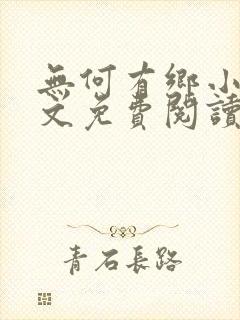 無何有鄉小
文免費閱讀
青石長路